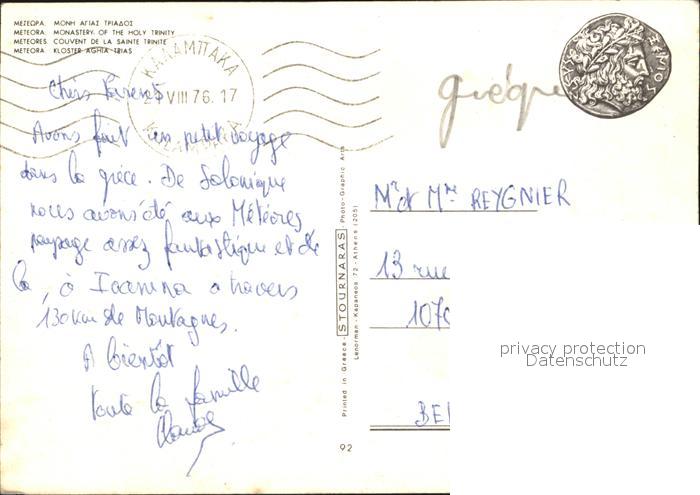 ΜΕΤΕΩΡΑ. ΜΟΝΗ ΑΓΙΑΣ ΤΡΙΑΔΟΣ
METEORA. MONASTERY OF THE HOLY TRINITY
METEORES. COUVENT DE LA SAINTE TRINITE
METEORA. KLOSTER AGHIA TRIAS
ΚΑΛΑΜΠΑΚΑ
VIII 76. 17
Chers Parents
Avons fait un petit voyage
dans la grèce. De Salonique
nous avons été aux Météores
paysage assez fantastique et de
là, à Ioannina a travers
130 km de Montagnes.
A bientôt
toute la famille
Printed in Greece - STOURNARAS - Photo-Graphic Arts
Lenorman - Kapaneos 72 - Athens (205)
92
Mr et Mme REYGNIER
13 rue
107
BE
privacy protection
Datenschutz